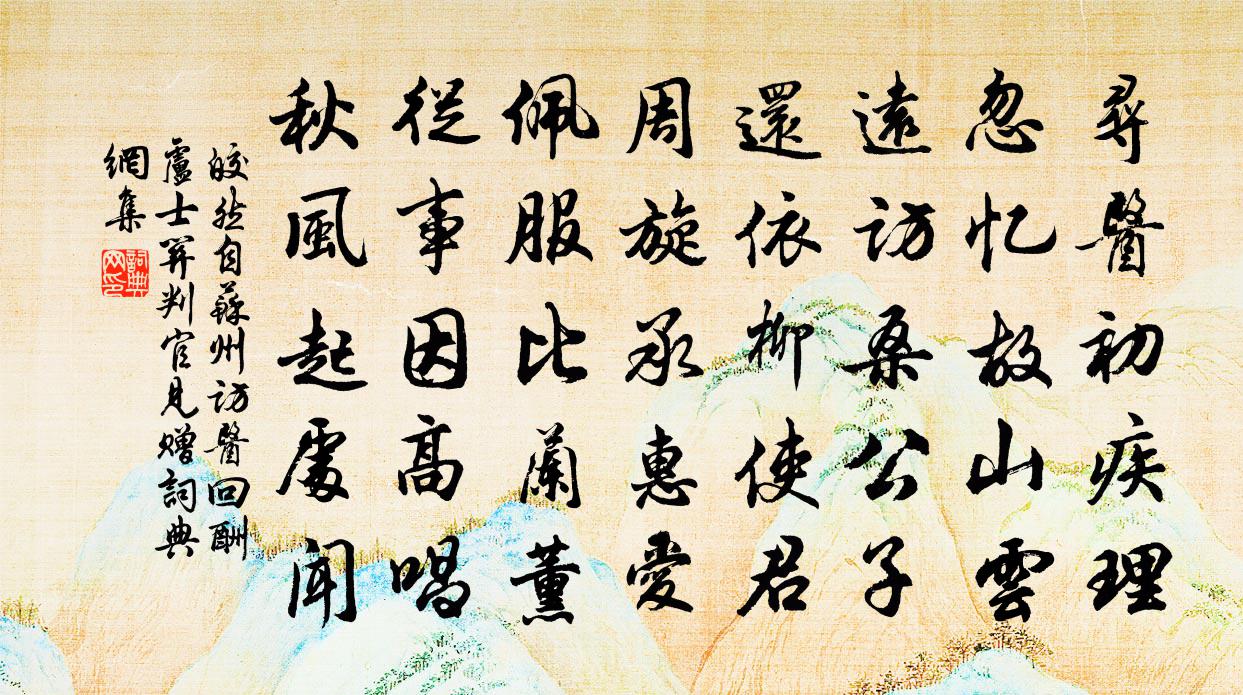 尋醫初疾理
忽忆故山雲
遠訪桑公子
還依柳使君
周旋承惠愛
佩服比蘭薰
從事因高唱
秋風起處聞
皎然自蘇州訪醫回酬
盧士關判官見贈詞典
網集
詞典网印